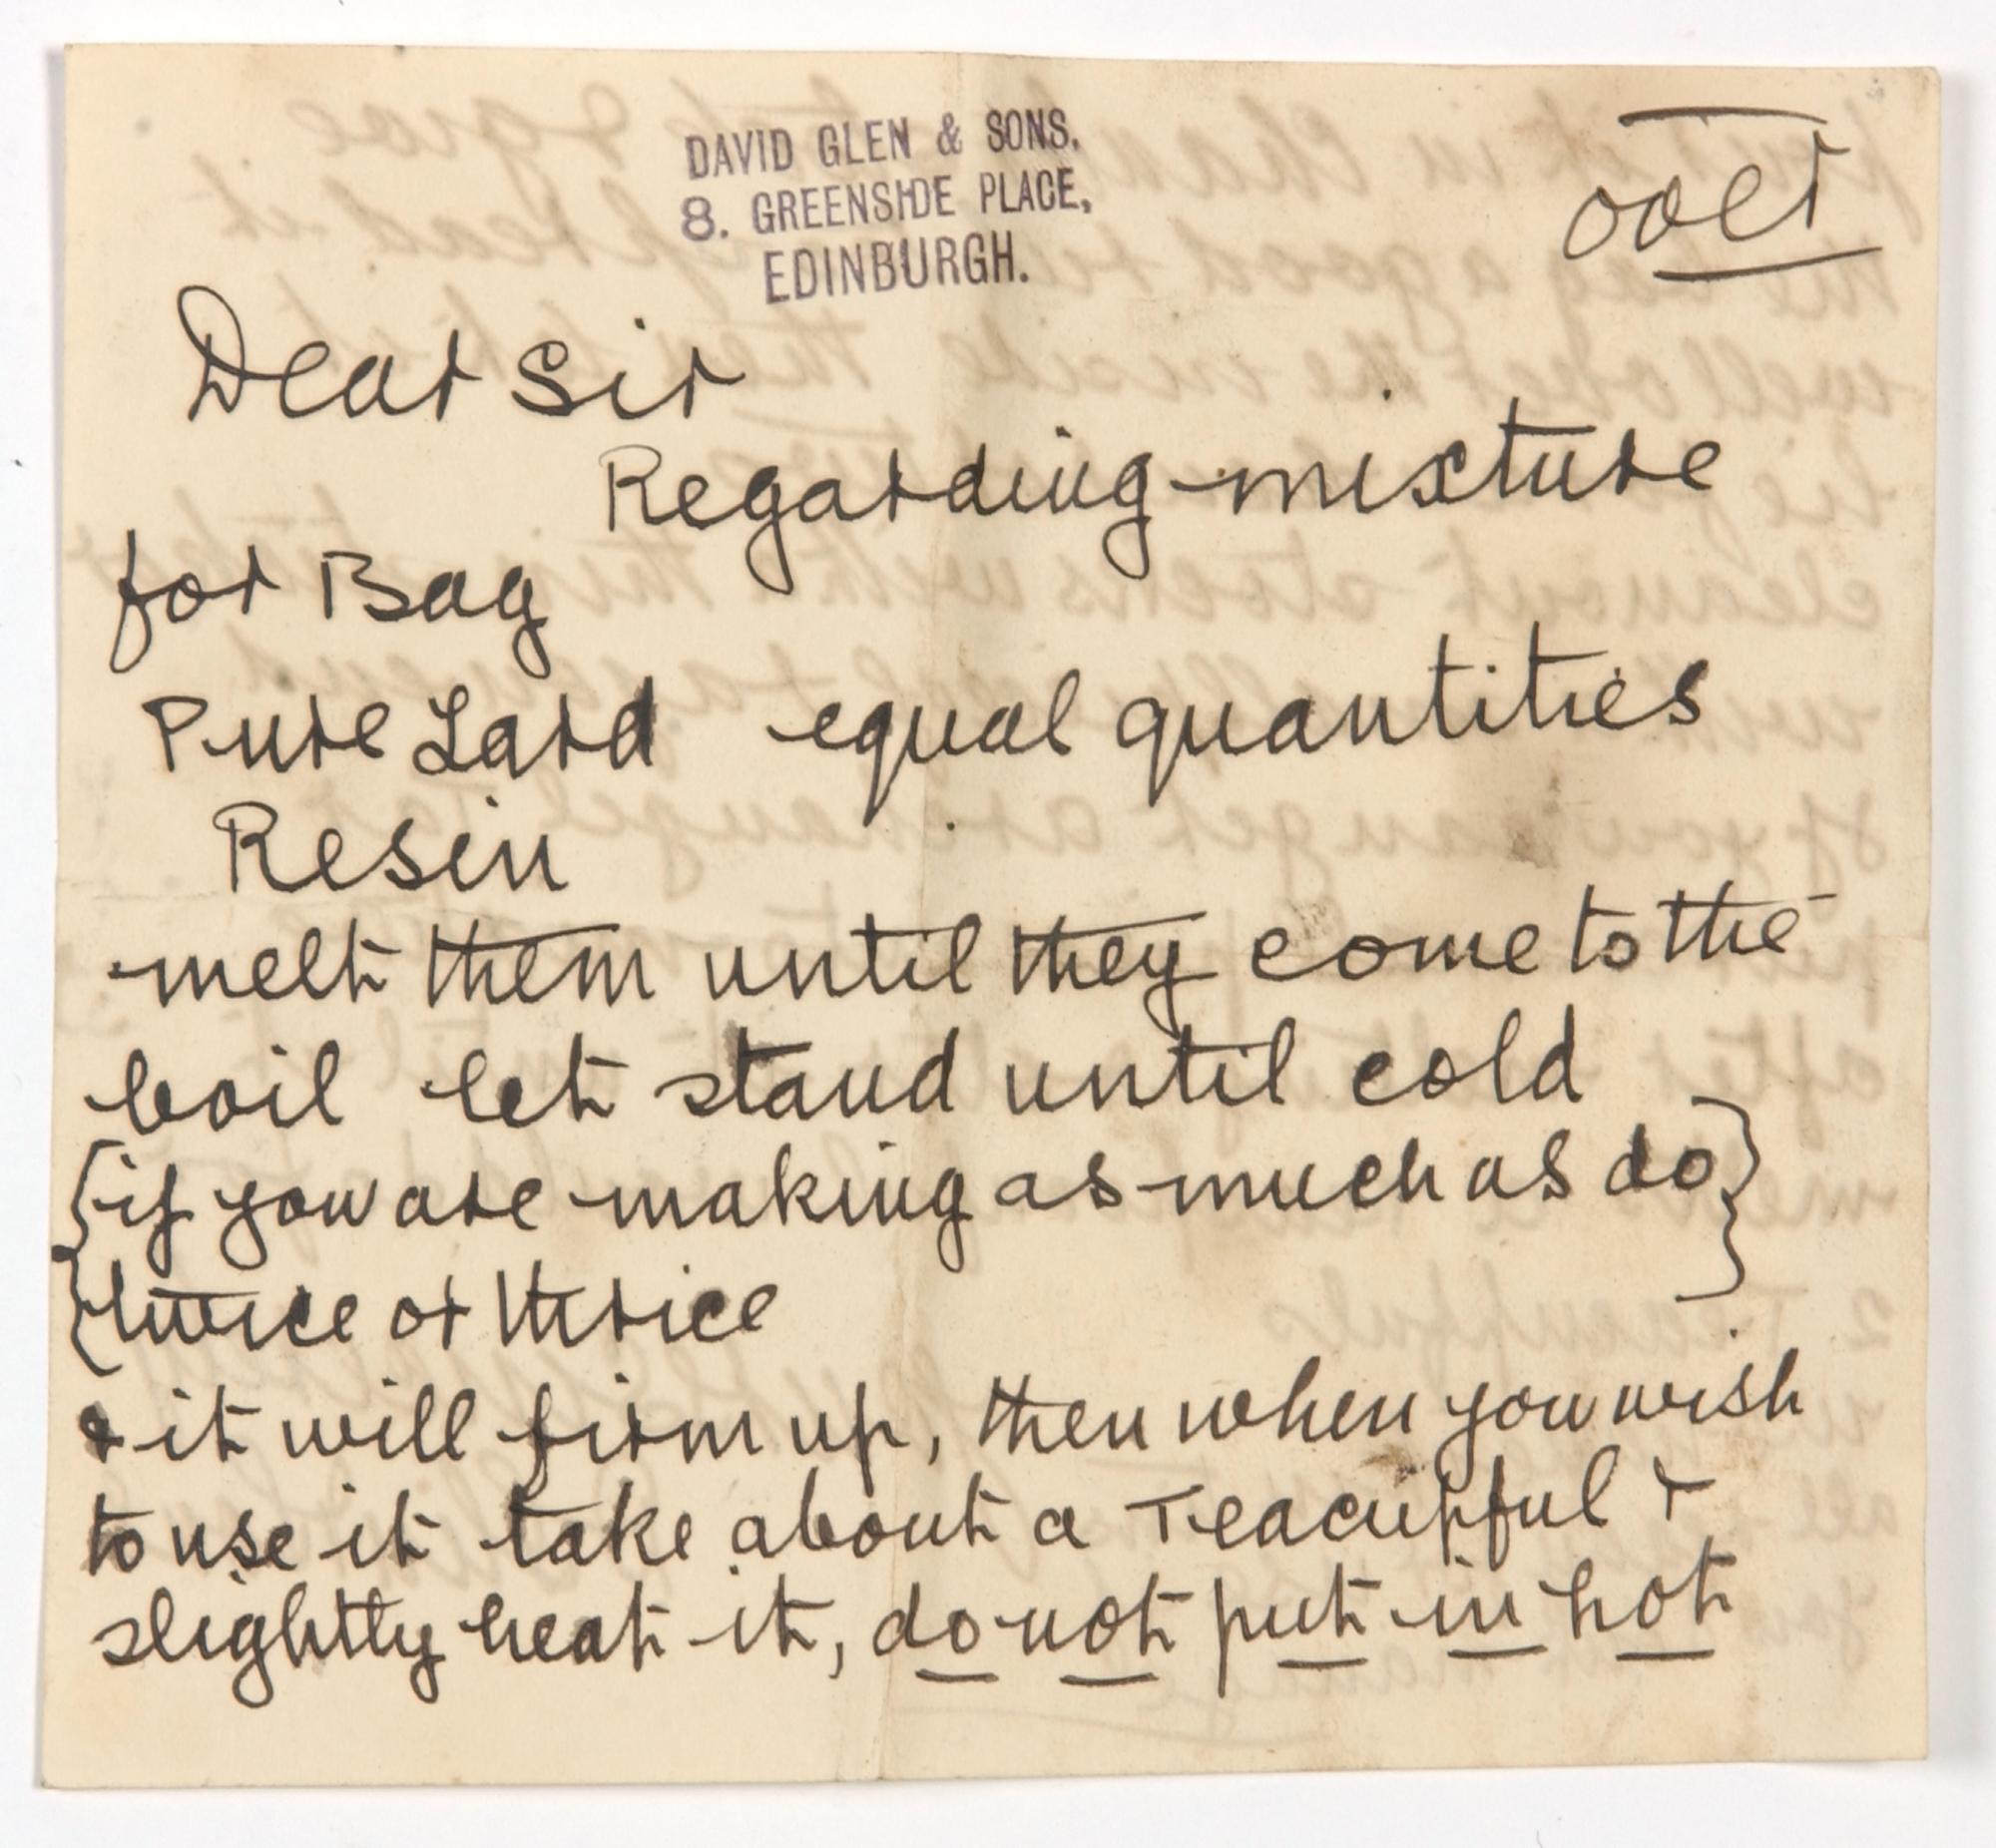 DAVID GLEN & SONS,
8. GREENSIDE PLACE,
EDINBURGH.
over
Dear Sir
Regarding mixture
for Bag
Pure Lard equal quantities
Resin
melt them until they come to the
boil let stand until cold
{if you are making as much as do}
{twice or thrice
& it will firm up, then when you wish
to use it take about a Teacupful &
slightly heat it, do not put in hot